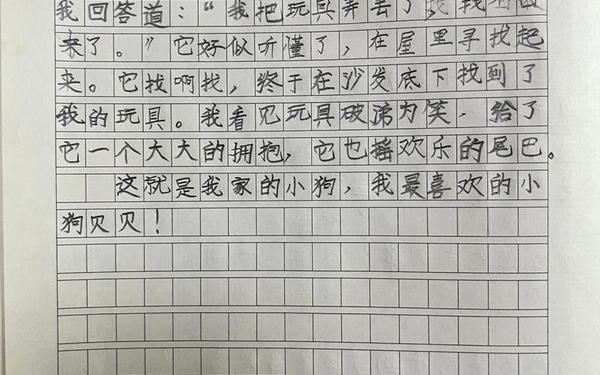 我回答道:“我把玩具弄丢了,找找
来了。”它好似听懂了,在屋里寻找起
来。它找啊找,终于在沙发底下找到了
我的玩具。我看见玩具破涕为笑,给了
它一个大大的拥抱,它也摇欢乐的尾巴。
这就是我家的小狗,我最喜欢的小
狗贝贝!